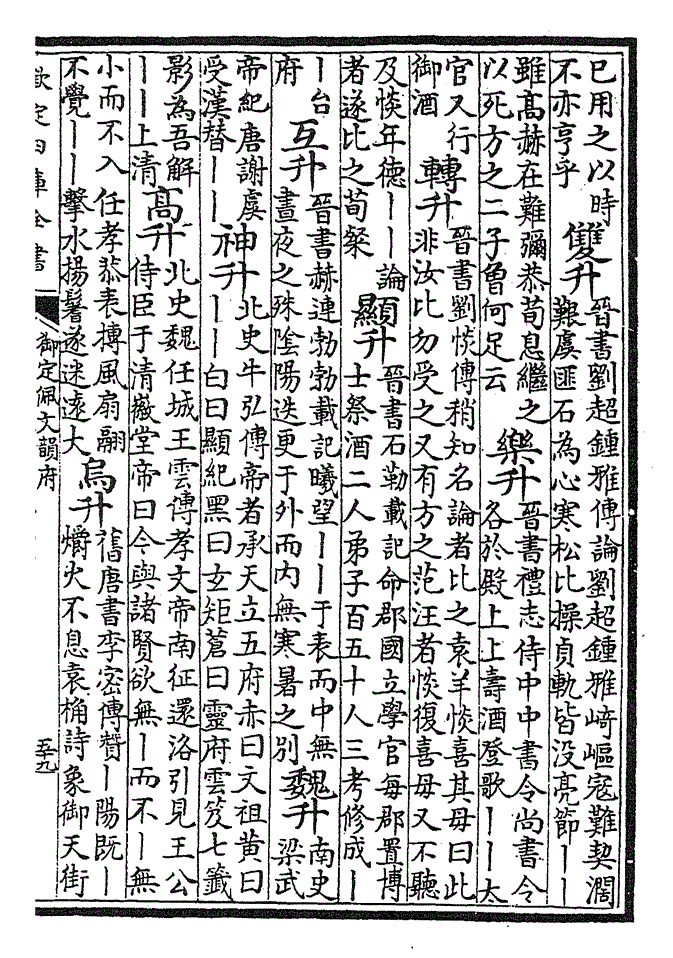 已用之以時
不亦亨乎
雙升
晉書劉超鍾雅傳論劉超鍾雅崎嶇寇難契濶
艱虞匪石為心寒松比操貞軌皆没亮節丨丨
雖高赫在難彌恭荀息繼之
以死方之二子曾何足云
樂升
晉書禮志侍中中書令尚書令
各於殿上上壽酒登歌丨丨太
官又行
御酒
轉升
晉書劉惔傳稍知名論者比之袁羊惔喜其母曰此
非汝比勿受之又有方之范汪者惔復喜母又不聽
及惔年德丨丨論
者遂比之荀粲
顯升
晉書石勒載記命郡國立學官每郡置博
士祭酒二人弟子百五十人三考修成丨
丨台
府
互升
晉書赫連勃勃載記曦望丨丨于表而中無
晝夜之殊陰陽迭更于外而内無寒暑之别
魏升
南史
梁武
帝紀唐謝虞
受漢替丨丨
神升
北史牛弘傳帝者承天立五府赤曰文祖黄曰
丨丨白曰顯紀黑曰玄矩蒼曰靈府雲笈七籤
影為吾解
丨丨上清
高升
北史魏任城王雲傳孝文帝南征還洛引見王公
侍臣于清徽堂帝曰今與諸賢欲無丨而不丨無
小而不入任孝恭表搏風扇翮
不覺丨丨擊水揚鬐遂迷遠大
烏升
舊唐書李密傳贊丨陽既丨
爝火不息袁桷詩象御天街
欽定四庫全書
御定佩文韻府
五十九